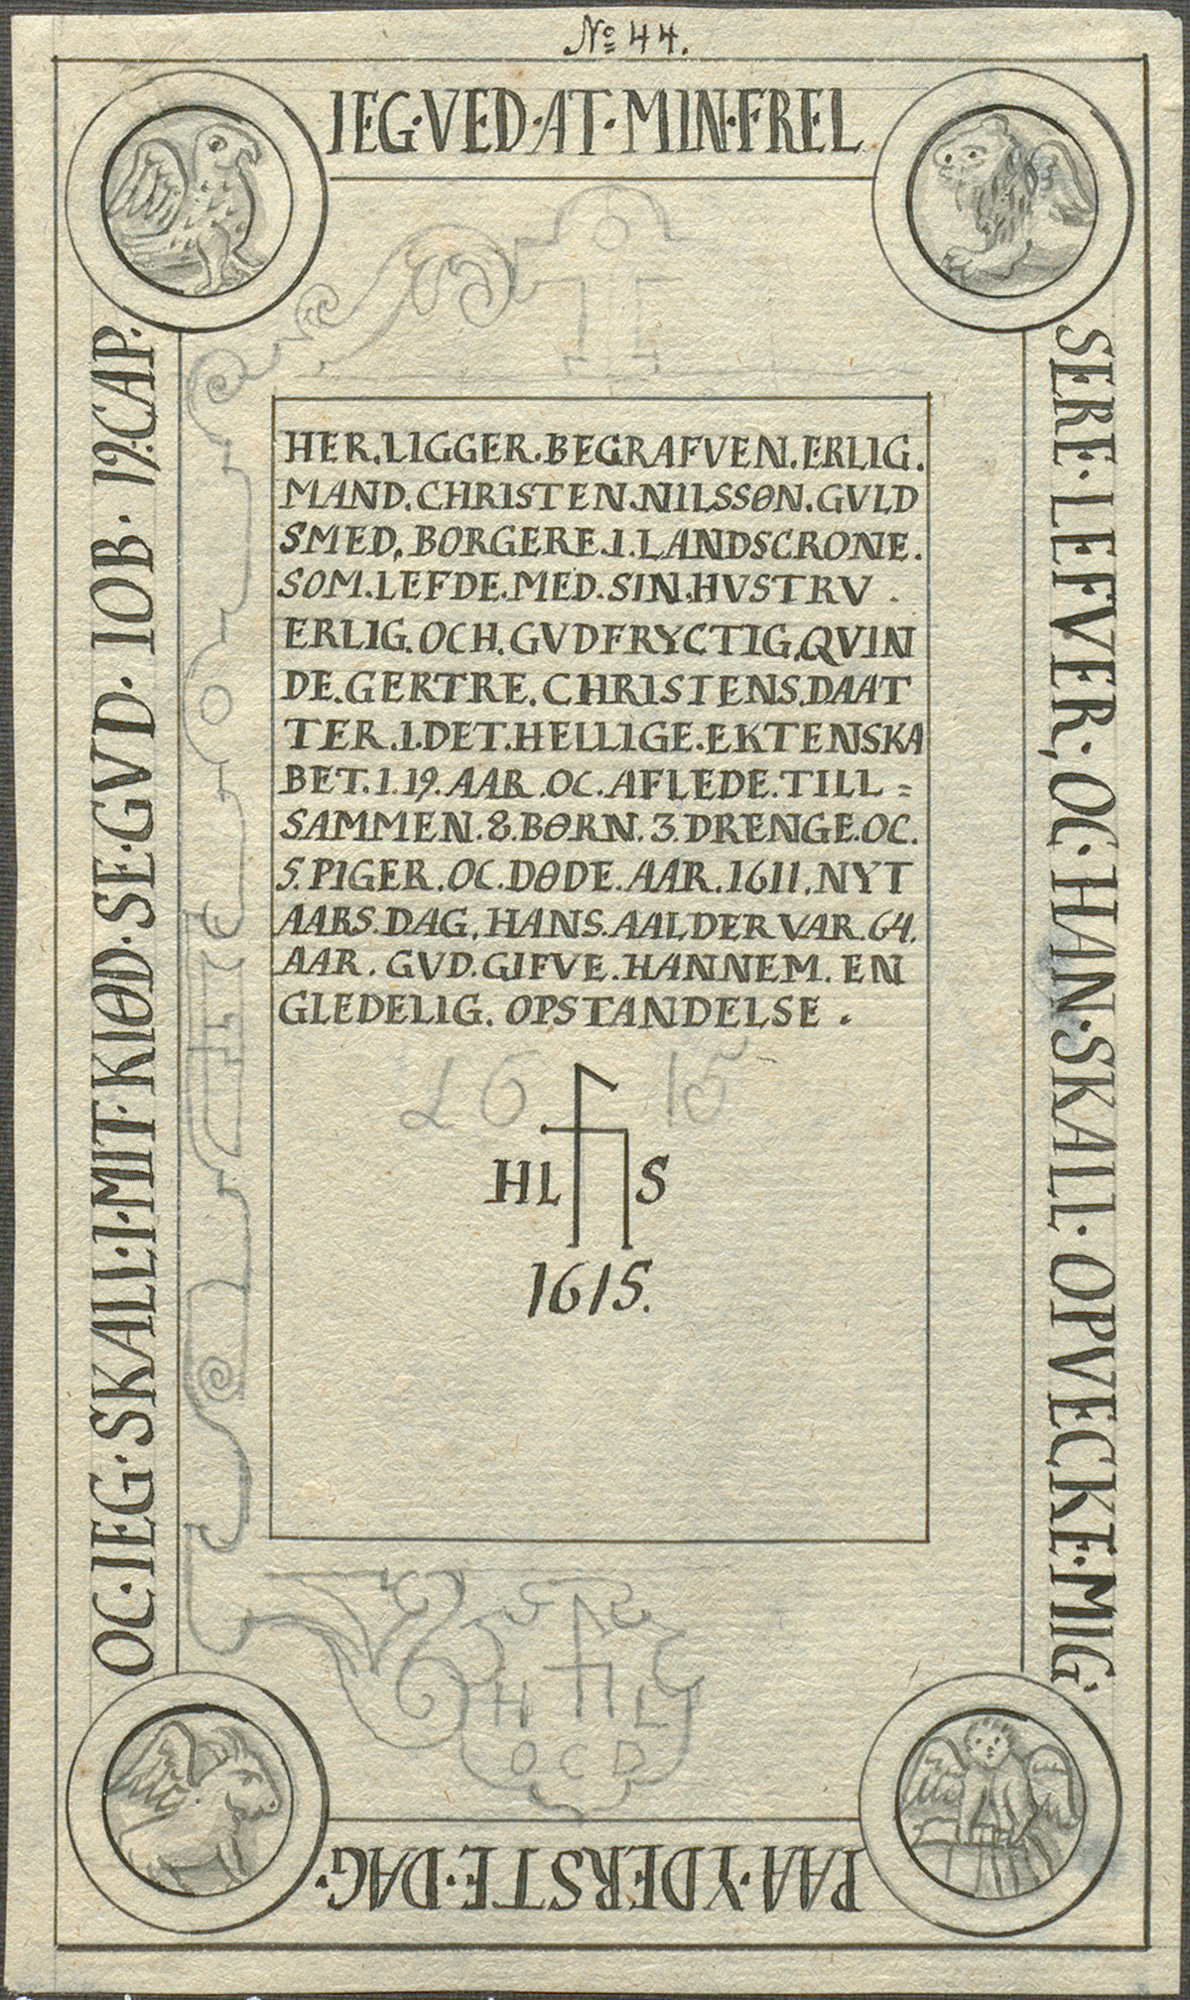 No 44.
IEG·VED·AT·MIN·FREL
SERE·LEFVER, OC·HAN·SKALL·OPVECKE·MIG·
PAA·YDERSTE·DAG·
OC·IEG·SKALL·I·MIT·KIØD·SE·GVD·IOB·19·CAP·
HER.LIGGER.BEGRAFVEN.ERLIG.
MAND.CHRISTEN.NILSSØN.GVLD
SMED.BORGERE.I.LANDSCRONE.
SOM.LEFDE.MED.SIN.HVSTRV.
ERLIG.OCH.GVDFRYCTIG.QVIN
DE.GERTRE.CHRISTENS.DAAT
TER.I.DET.HELLIGE.EKTENSKA
BET.I.19.AAR.OC.AFLEDE.TILL=
SAMMEN.8.BØRN.3.DRENGE.OC.
5.PIGER.OC.DØDE.AAR.1611.NYT
AARS.DAG.HANS.AALDER VAR.64.
AAR.GVD.GIFVE.HANNEM.EN
GLEDELIG.OPSTANDELSE.
16 15
HL S
1615.
H L
O C D